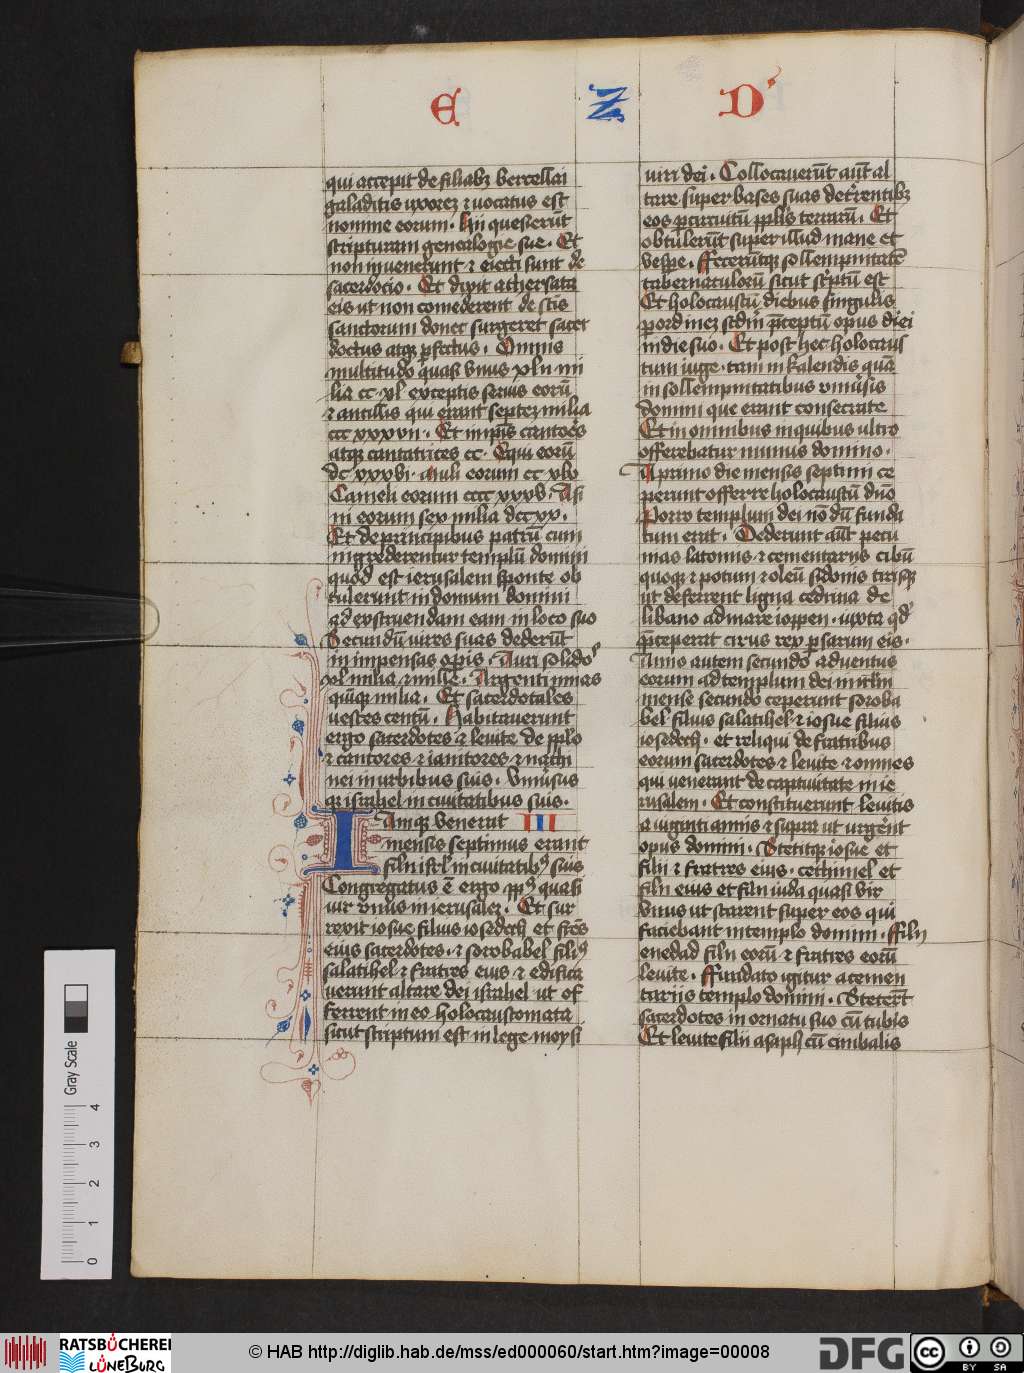 E Z D'
qui accepit de filiab3 bercellai
galaditis uxorez ⁊ uocatus est
nomine eorum. Hii quesierūt
scripturam genealogie sue. Et
non inuenerunt ⁊ eiecti sunt de
sacerdocio. Et dixit athersata
eis ut non comederent de scīs
sanctorum donec surgeret sacer
doctus atq3 pfectus. Omnis
multitudo quasi vnus xlii mi
lia cc xl exceptis seruis eorū
⁊ ancillis qui erant septez milia
ccc xxxvii. Et in ipīs cantoēs
atq3 cantatrices cc. Equi eorū
dc xxxvi. muli eorum cc xlv
Cameli eorum cccc xxxv. Asi
ni eorum sex milia dccxx.
Et de principibus patrū cum
ingrederentur templū domini
quod est ierusalem sponte ob
tulerunt in domum domini
ad exstruendam eam in loco suo
Secundū uires suas dederūt
in impensas opis. Auri solido
xl milia ⁊ mille. Argenti mnas
quīq3 milia. Et sacerdotales
uestes centū. Habitauerunt
ergo sacerdotes ⁊ leuite de pplo
⁊ cantores ⁊ ianitores ⁊ nathi
nei in urbibus suis. Vniūsus
q3 israhel in ciuitatibus suis.
IAmq3 venerat III
mensis septimus erant
filii isrl' in ciuitatib9 suis
Congregatus ē ergo pp9 quasi
uir vnus in ierusalez. Et sur
rexit iosue filius iosedech et frēs
eius sacerdotes. ⁊ sorobabel fili9
salatihel ⁊ fratres eius ⁊ edifica
uerunt altare dei israhel ut of
ferrent in eo holocaustomata
sicut scriptum est in lege moysi
uiri dei. Collocauerūt aūt al
tare super bases suas det̄rentib3
eos p circuitū pplis terrarū. Et
obtulerūt super illud mane et
vesp̄e. Fecerūtq3 sollempnitatē
tabernaculorū sicut sc'ptū est
Et holocaustū diebus singulis
p ordinez scd'm p̄ceptū opus diei
in die suo. Et post hec holocaus
tum iuge. tam in kalendis quā
in sollempnitatibus vniūsis
domini que erant consecrate
Et in omnibus in quibus ultro
offerebatur munus domino.
A primo die mensis septimi ce
perunt offerre holocaustū dn̄o
Porro templum dei nō dū funda
tum erat. Dederunt aūt pecu
nias latomis ⁊ cementariis cibū
quoq3 ⁊ potum ⁊ oleū sidoniis tirisq3
ut deferrent ligna cedrina de
libano ad mare ioppen. iuxta qd'
p̄ceperat cirus rex psarum eis.
Anno autem secundo aduentus
eorum ad templum dei in irl'm
mense secundo ceperunt soroba
bel filius salatihel ⁊ iosue filius
iosedech. et reliqui de fratribus
eorum sacerdotes ⁊ leuite ⁊ omnes
qui uenerant de captiuitate in ie
rusalem. Et constituerunt leuitis
a uiginti annis ⁊ supra ut urgēnt
opus domini. Stetitq3 iosue et
filii ⁊ fratres eius. cethimel et
filii eius et filii iuda quasi vir
vnus ut starent super eos qui
faciebant in templo domini. Filii
enedad filii eorū ⁊ fratres eorū
leuite. Fundato igitur a cemen
tariis templo domini. Stetert̄
sacerdotes in ornatu suo cū tubis
Et leuite filii asaph cū cimbalis
Gray Scale
0 1 2 3 4
RATSBÜCHEREI LÜNEBURG
© HAB http://diglib.hab.de/mss/ed000060/start.htm?image=00008
DFG
cc BY SA